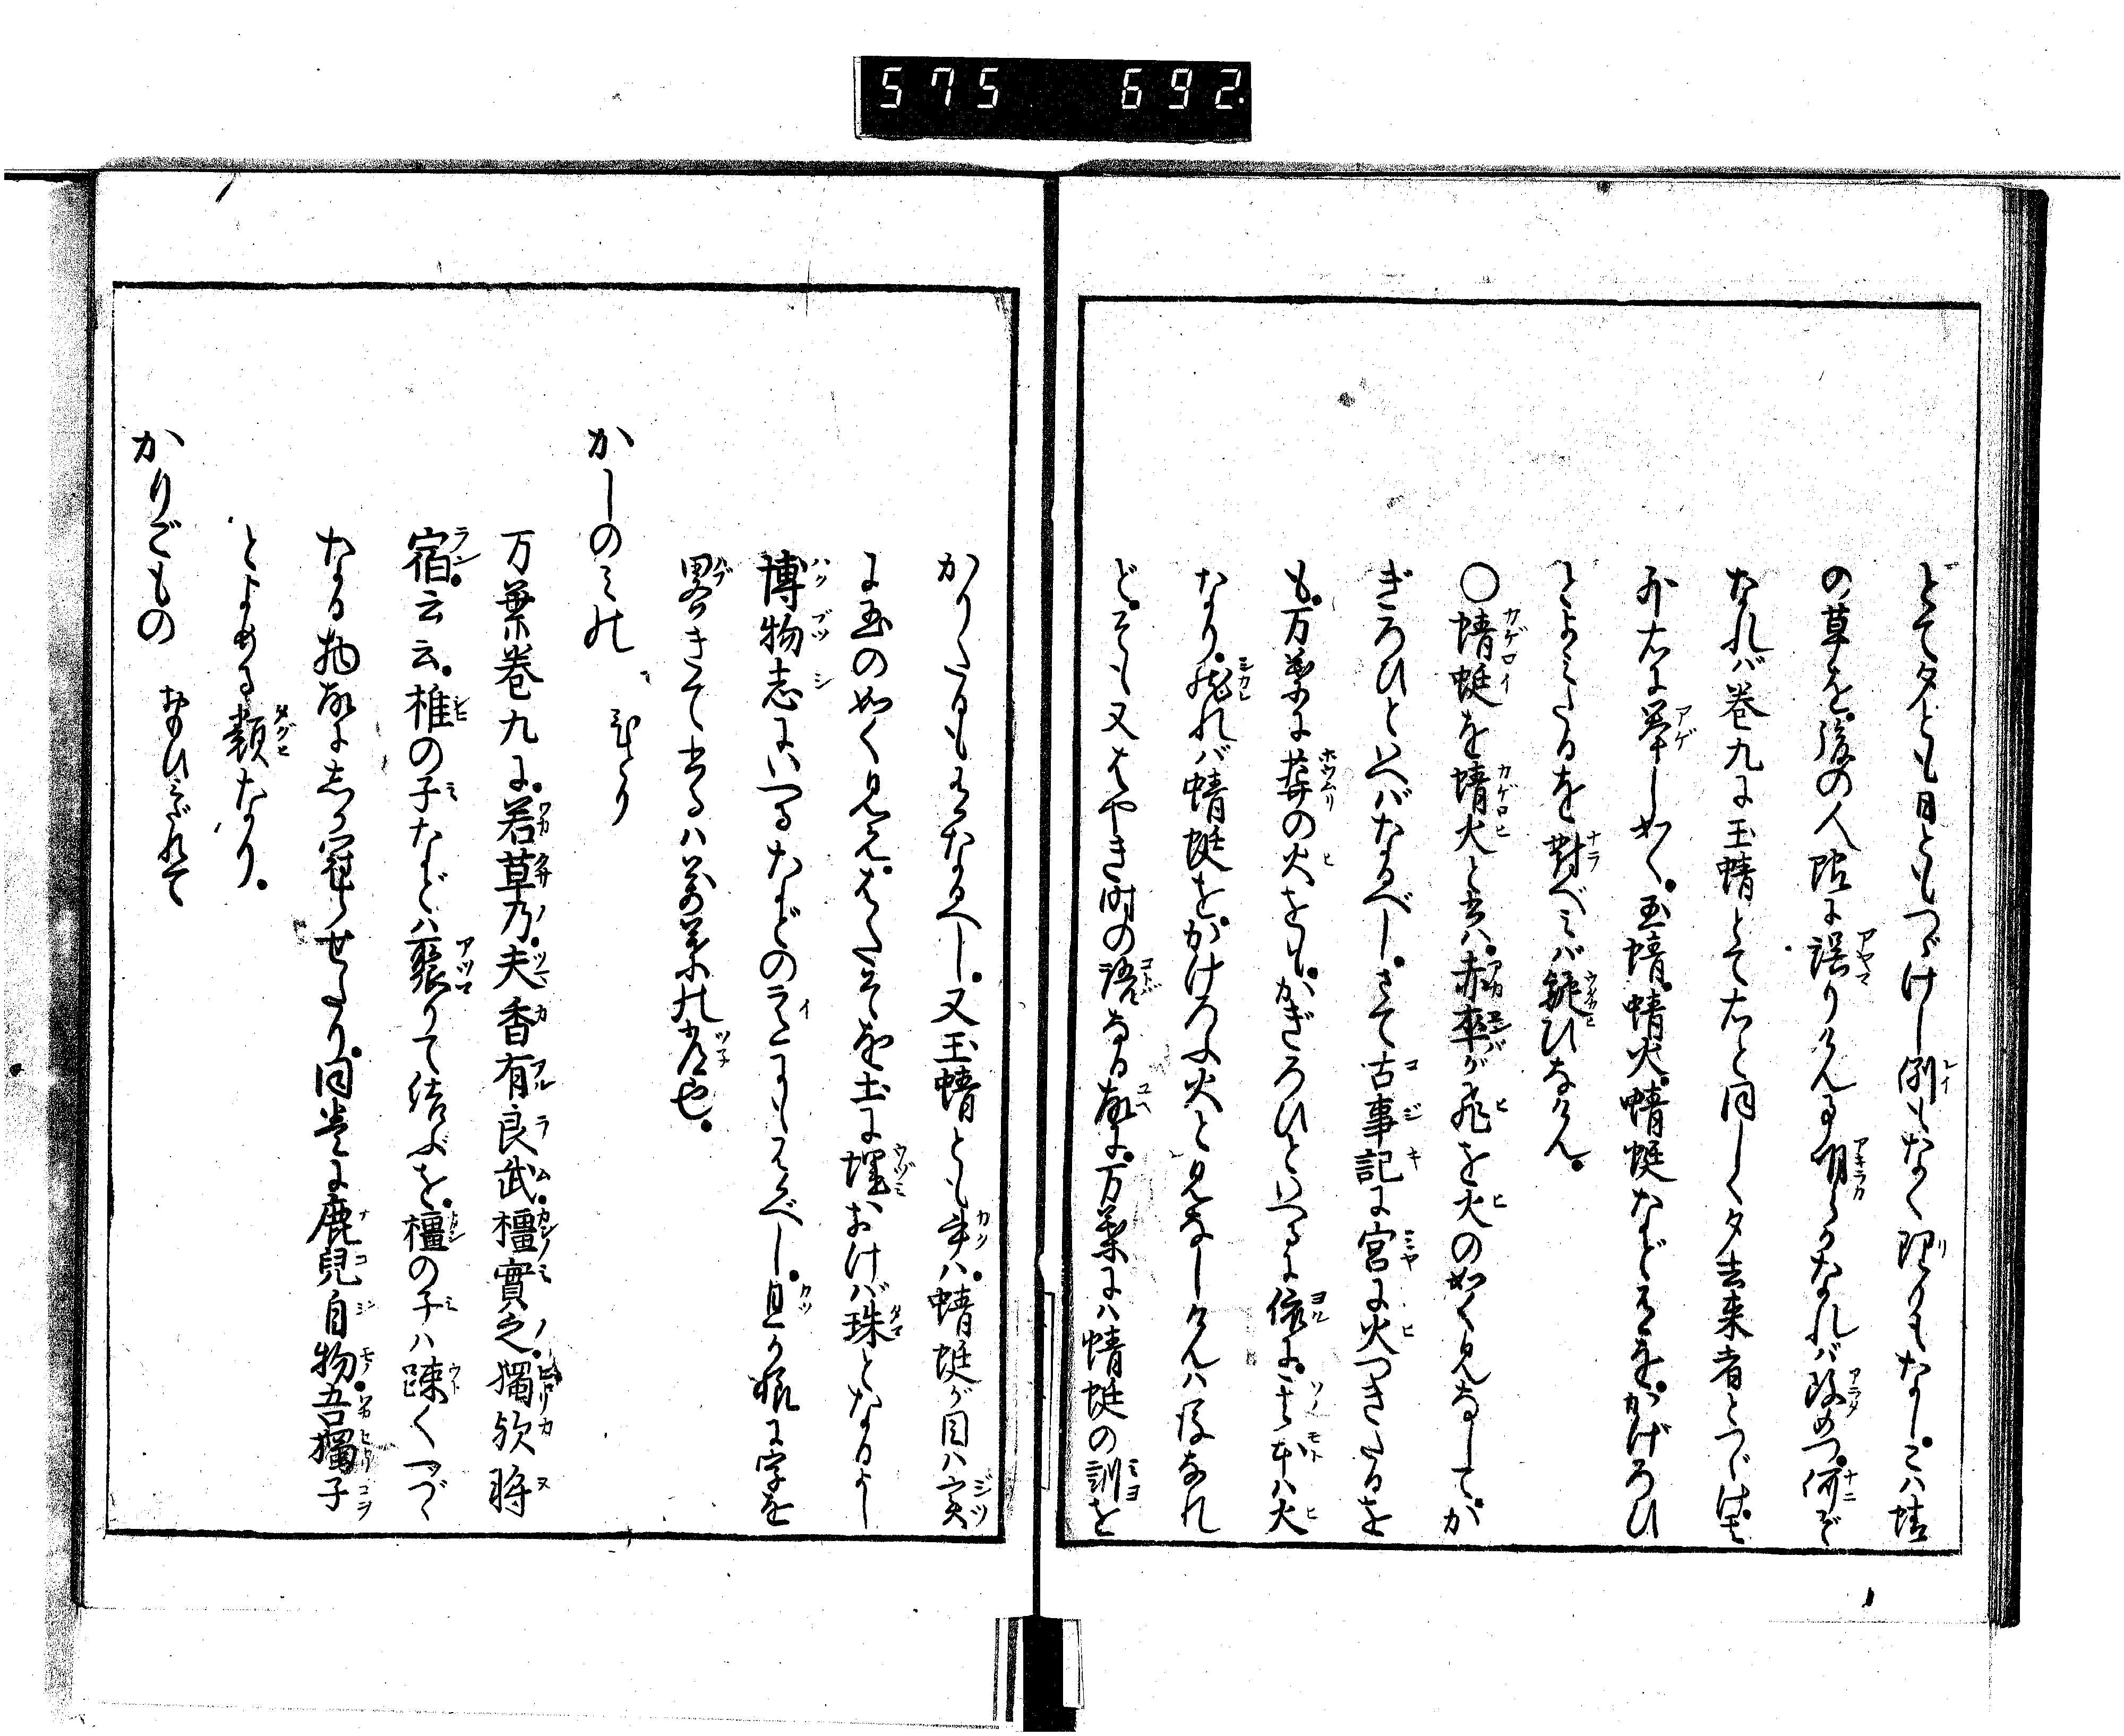 575 692
とて夕とも日ともつゞけし例もなく理りもなし。こハ蜻
の草を。後の人陀に誤りけんる明らかなれバ改めつ。何ぞ
なれバ巻九に玉蜻とて右と同しく夕去来者とつゞけ
右に挙し如く。玉蜻。蜻火。蜻蜓などあるを。かげろひ
とよみたるを對べミバ疑ひなけん。
〇蜻蜓を蜻火と云ハ。赤卒が飛を火の如く見なしてか
ぎろひといへバなるべし。さて古事記に宮に火つきたるを
も。万葉に葬の火をも。かぎろひといへるに依に。其本ハ火
なり。然れバ蜻蜓を。かけろふ火と見なしけんハ後なれ
ど。そも又はやき時の語なる故に。万葉にハ蜻蜓の訓を
かりたるも有なるへし。又玉蜻とも書ハ。蜻蜓が目ハ実
に玉の如く見え。はたそを土に埋おけバ珠となるよし
博物志にいへるなどの意にもあるべし。且かゝ様に字を
畧きて書るハ万葉の常也。
かしのみの ひとり
万葉巻九に。若草乃。夫香有良武。橿實之。獨歟将
宿。云云。椎の子などハ聚りて結ぶを。橿の子ハ疎くつゞく
なる物故にしか冠らせたり。同巻に鹿兒自物。吾獨子
とよめる類なり。
かりごもの おもひみだれて